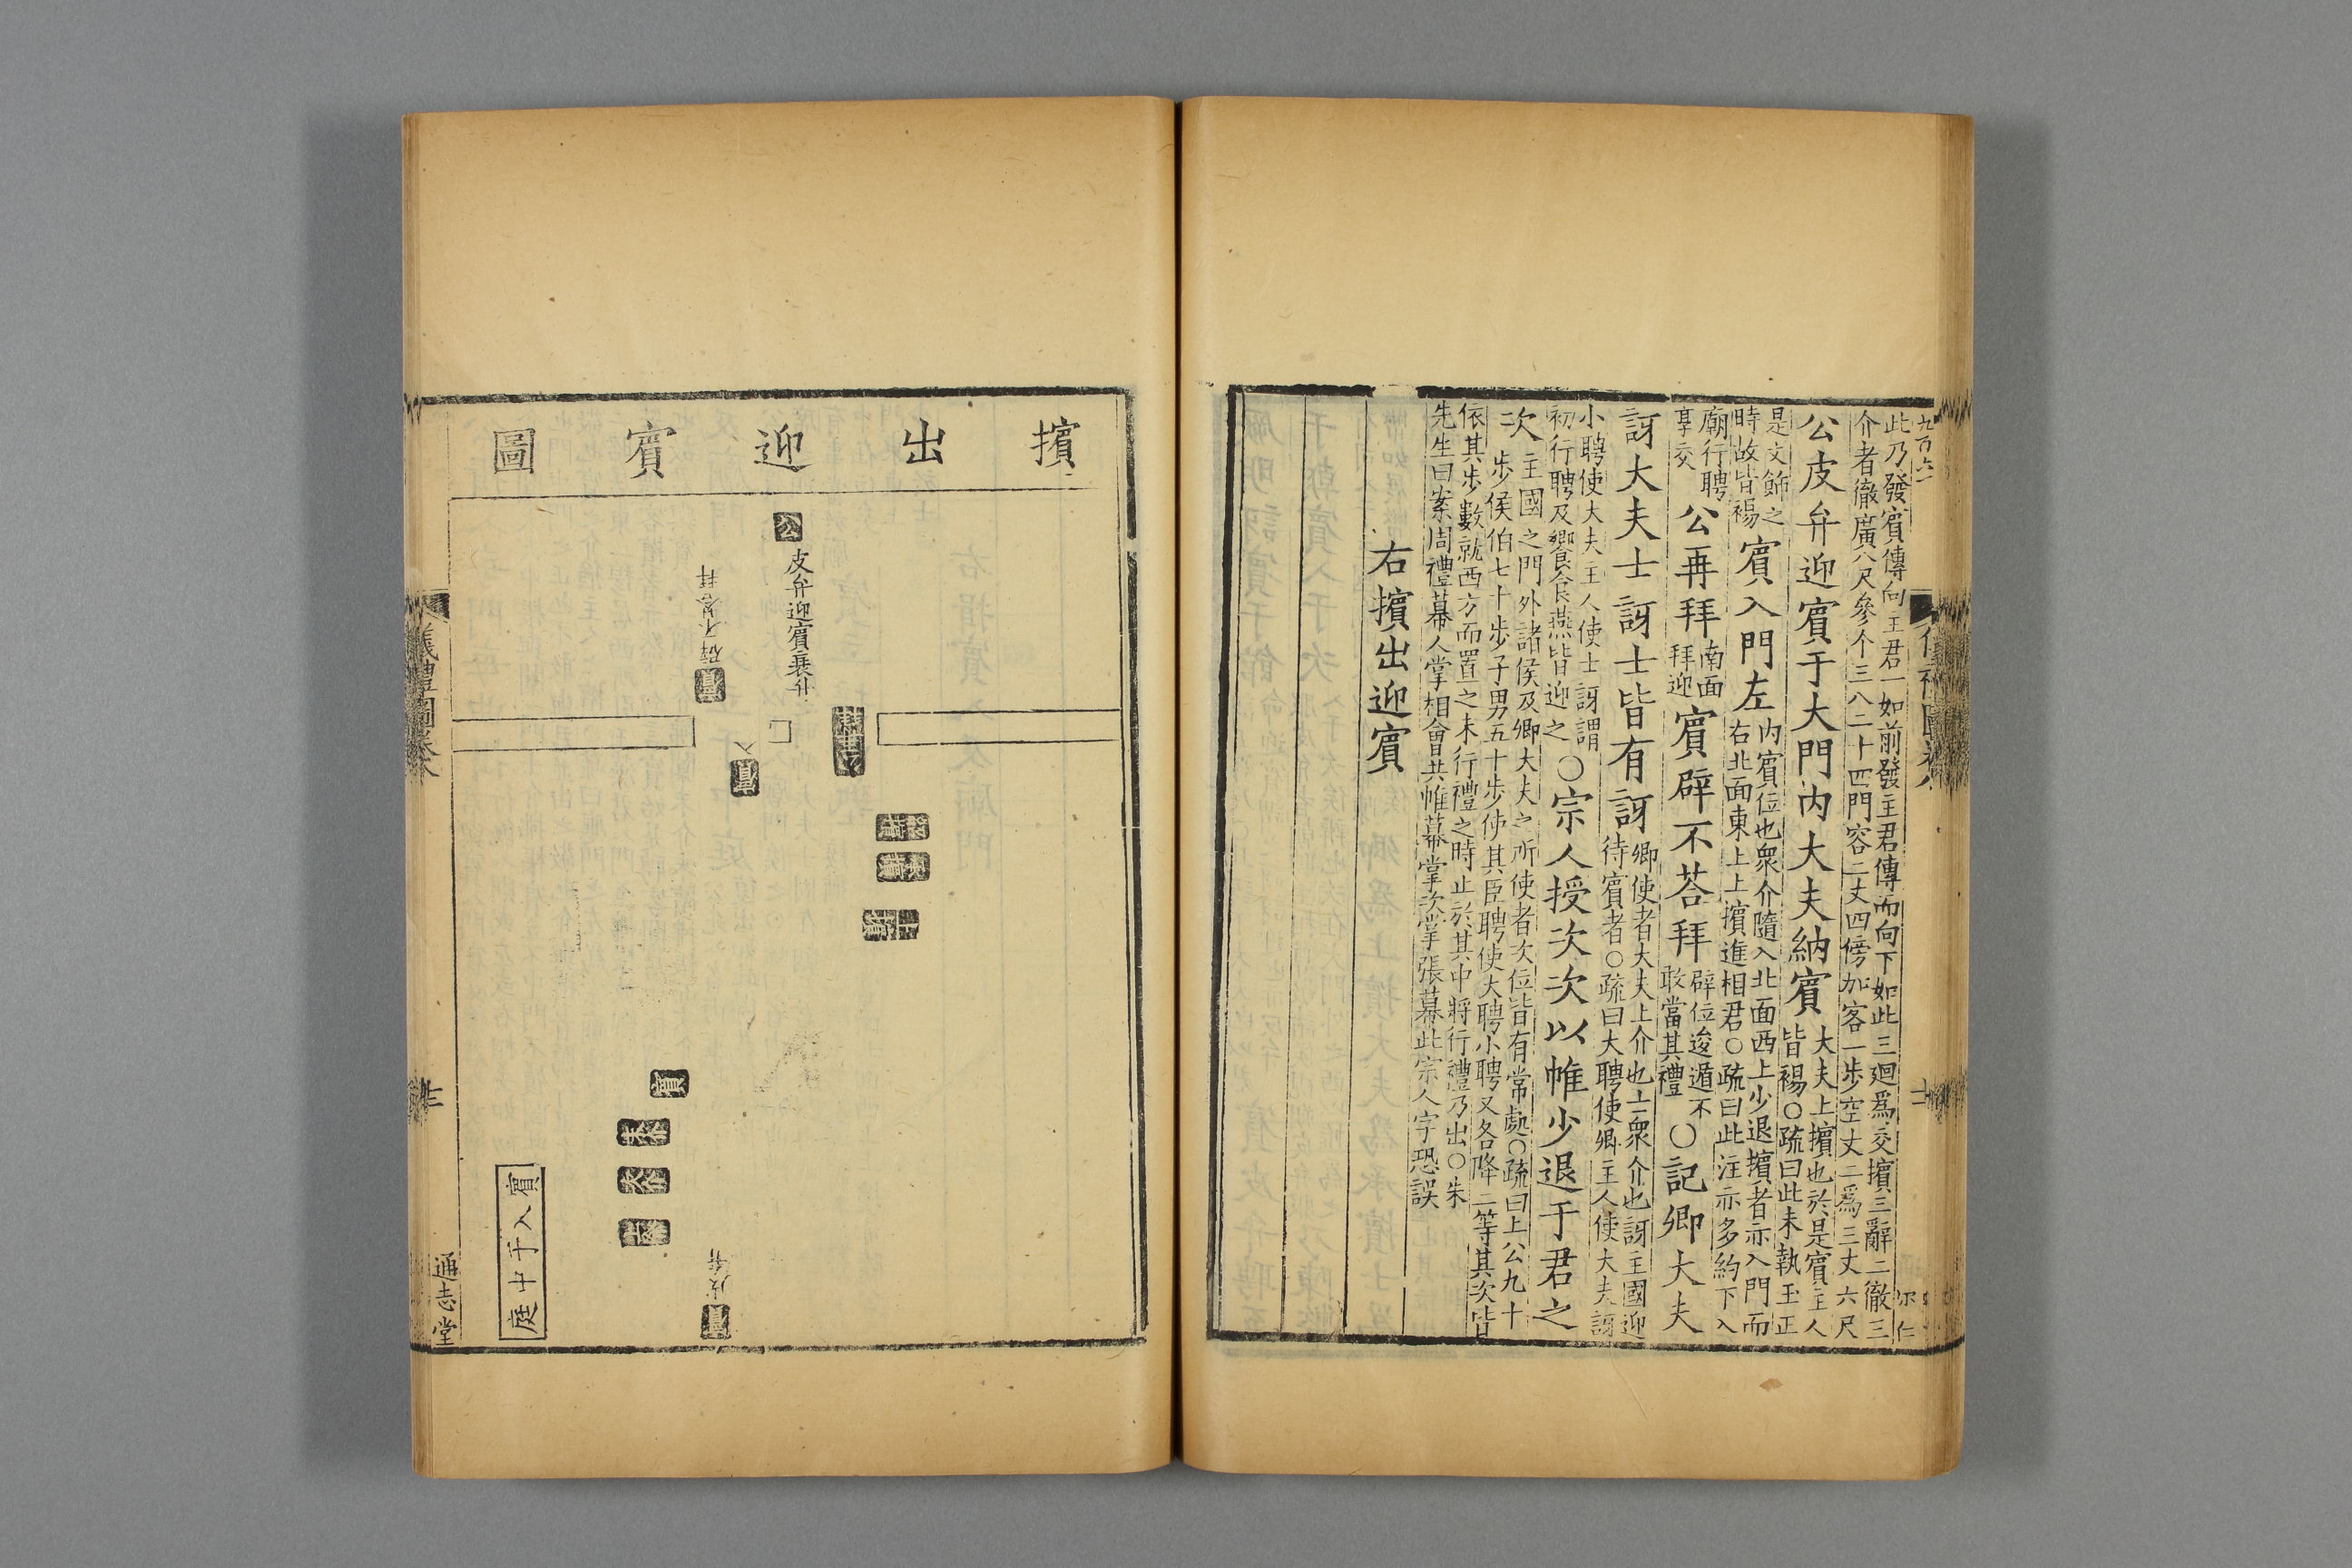 此乃發賓傳向主君一如前發主君傳而向下如此三迴爲交擯三辭二徹三
介者徹廣八尺參个三八二十四門容二丈四傍加客一步空丈二爲三丈六尺
公皮弁迎賓于大門内大夫納賓
大夫上擯也於是賓主人
皆裼○疏曰此未執玉正
是文飾之
時故皆裼
賓入門左
内賓位也衆介隨入北面西上少退擯者亦入門而
右北面東上上擯進相君○疏曰此注亦多約下入
廟行聘
享交
公再拜
南面
拜迎
賓辟不荅拜
辟位逡遁不
敢當其禮
○記卿大夫
訝大夫士訝士皆有訝
卿使者大夫上介也士衆介也訝主國迎
待賓者○疏曰大聘使卿主人使大夫訝
小聘使大夫主人使士訝謂
初行聘及饗食燕皆迎之
○宗人授次次以帷少退于君之
次
主國之門外諸侯及卿大夫之所使者次位皆有常處○疏曰上公九十
步侯伯七十步子男五十步使其臣聘使大聘小聘又各降二等其次皆
依其步數就西方而置之未行禮之時止於其中將行禮乃出○朱
先生曰案周禮幕人掌相會共帷幕掌次掌張幕此宗人字恐誤
右擯出迎賓
擯出迎賓圖
公
皮弁迎賓
賓
辟不荅拜
賓
入
賓
賓
皮弁
賓入于中庭
通志堂